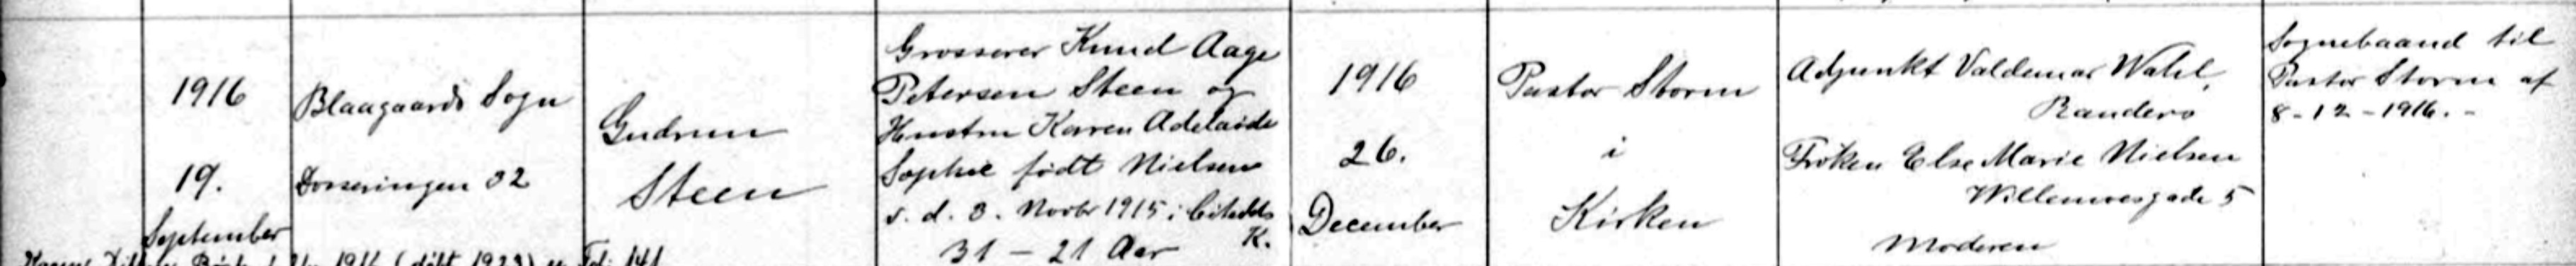 1916
19.
September
Blaagaards Sogn
Dosseringen 32
Gudrun
Steen
Grosserer Knud Aage
Petersen Steen og
Hustru Karen Adelaide
Sophie født Nielsen
v. d. 3. Novbr 1915 i Citadels
K.
31 - 21 Aar
1916
26.
December
Pastor Storm
i
Kirken
Adjunkt Valdemar Wahl,
Randers
Frøken Else Marie Nielsen
Willemoesgade 5
Moderen
Sognebaand til
Pastor Storm af
8-12-1916.-
1916 (døbt 1923)
141